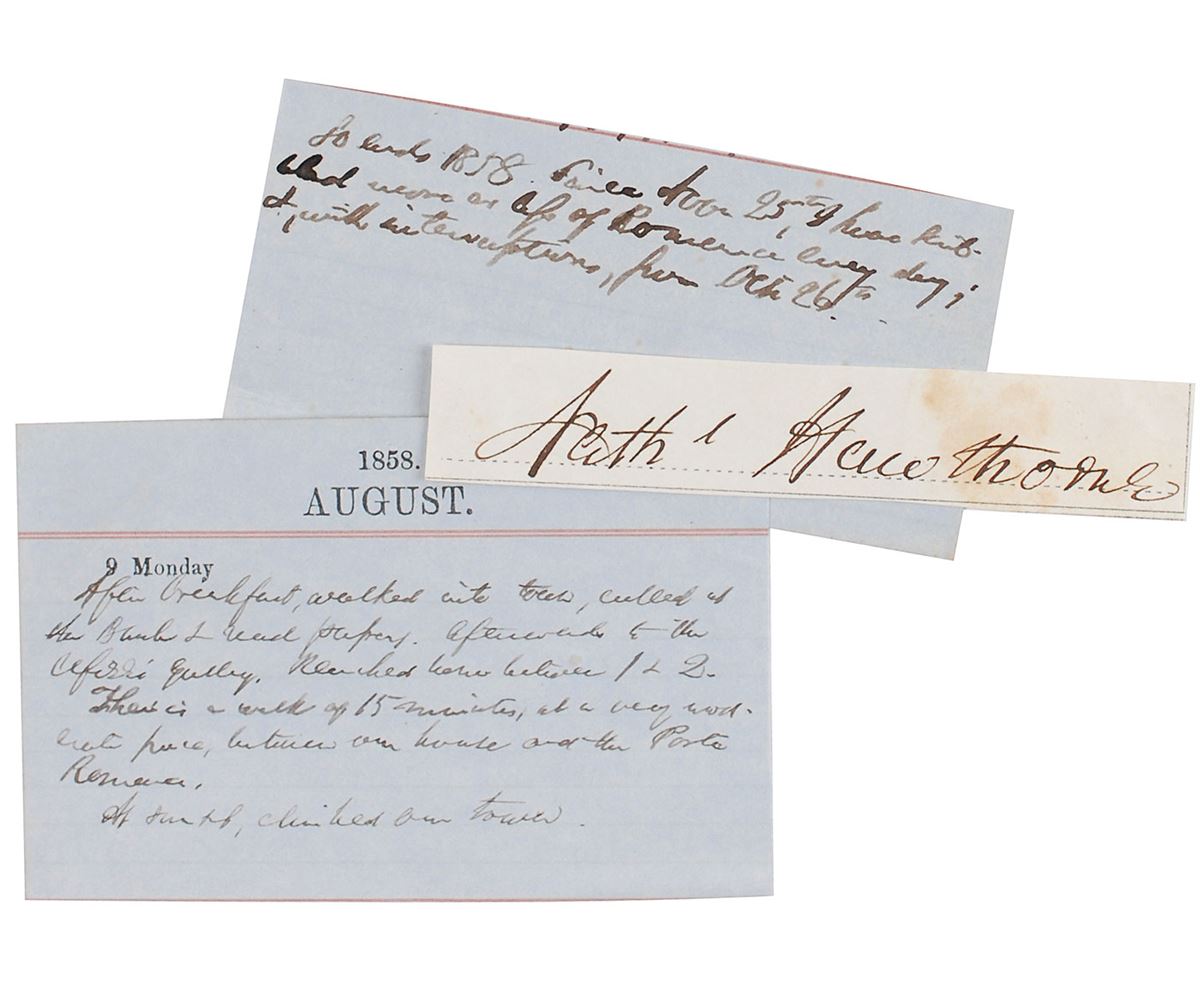 So ends 1858. Since Nov 25th, I have scrib-
bled more or less of Romance every day;
&, with interruptions, from Oct 26th.
Nathl Hawthorne
1858.
AUGUST.
9 Monday
After breakfast, walked into town, called at
the Bank & read papers. Afterwards to the
Uffizzi Gallery. Reached home between 1 & 2.
There is a walk of 15 minutes, at a very mod-
erate pace, between our house and the Porta
Romana.
At sunset, climbed our tower.